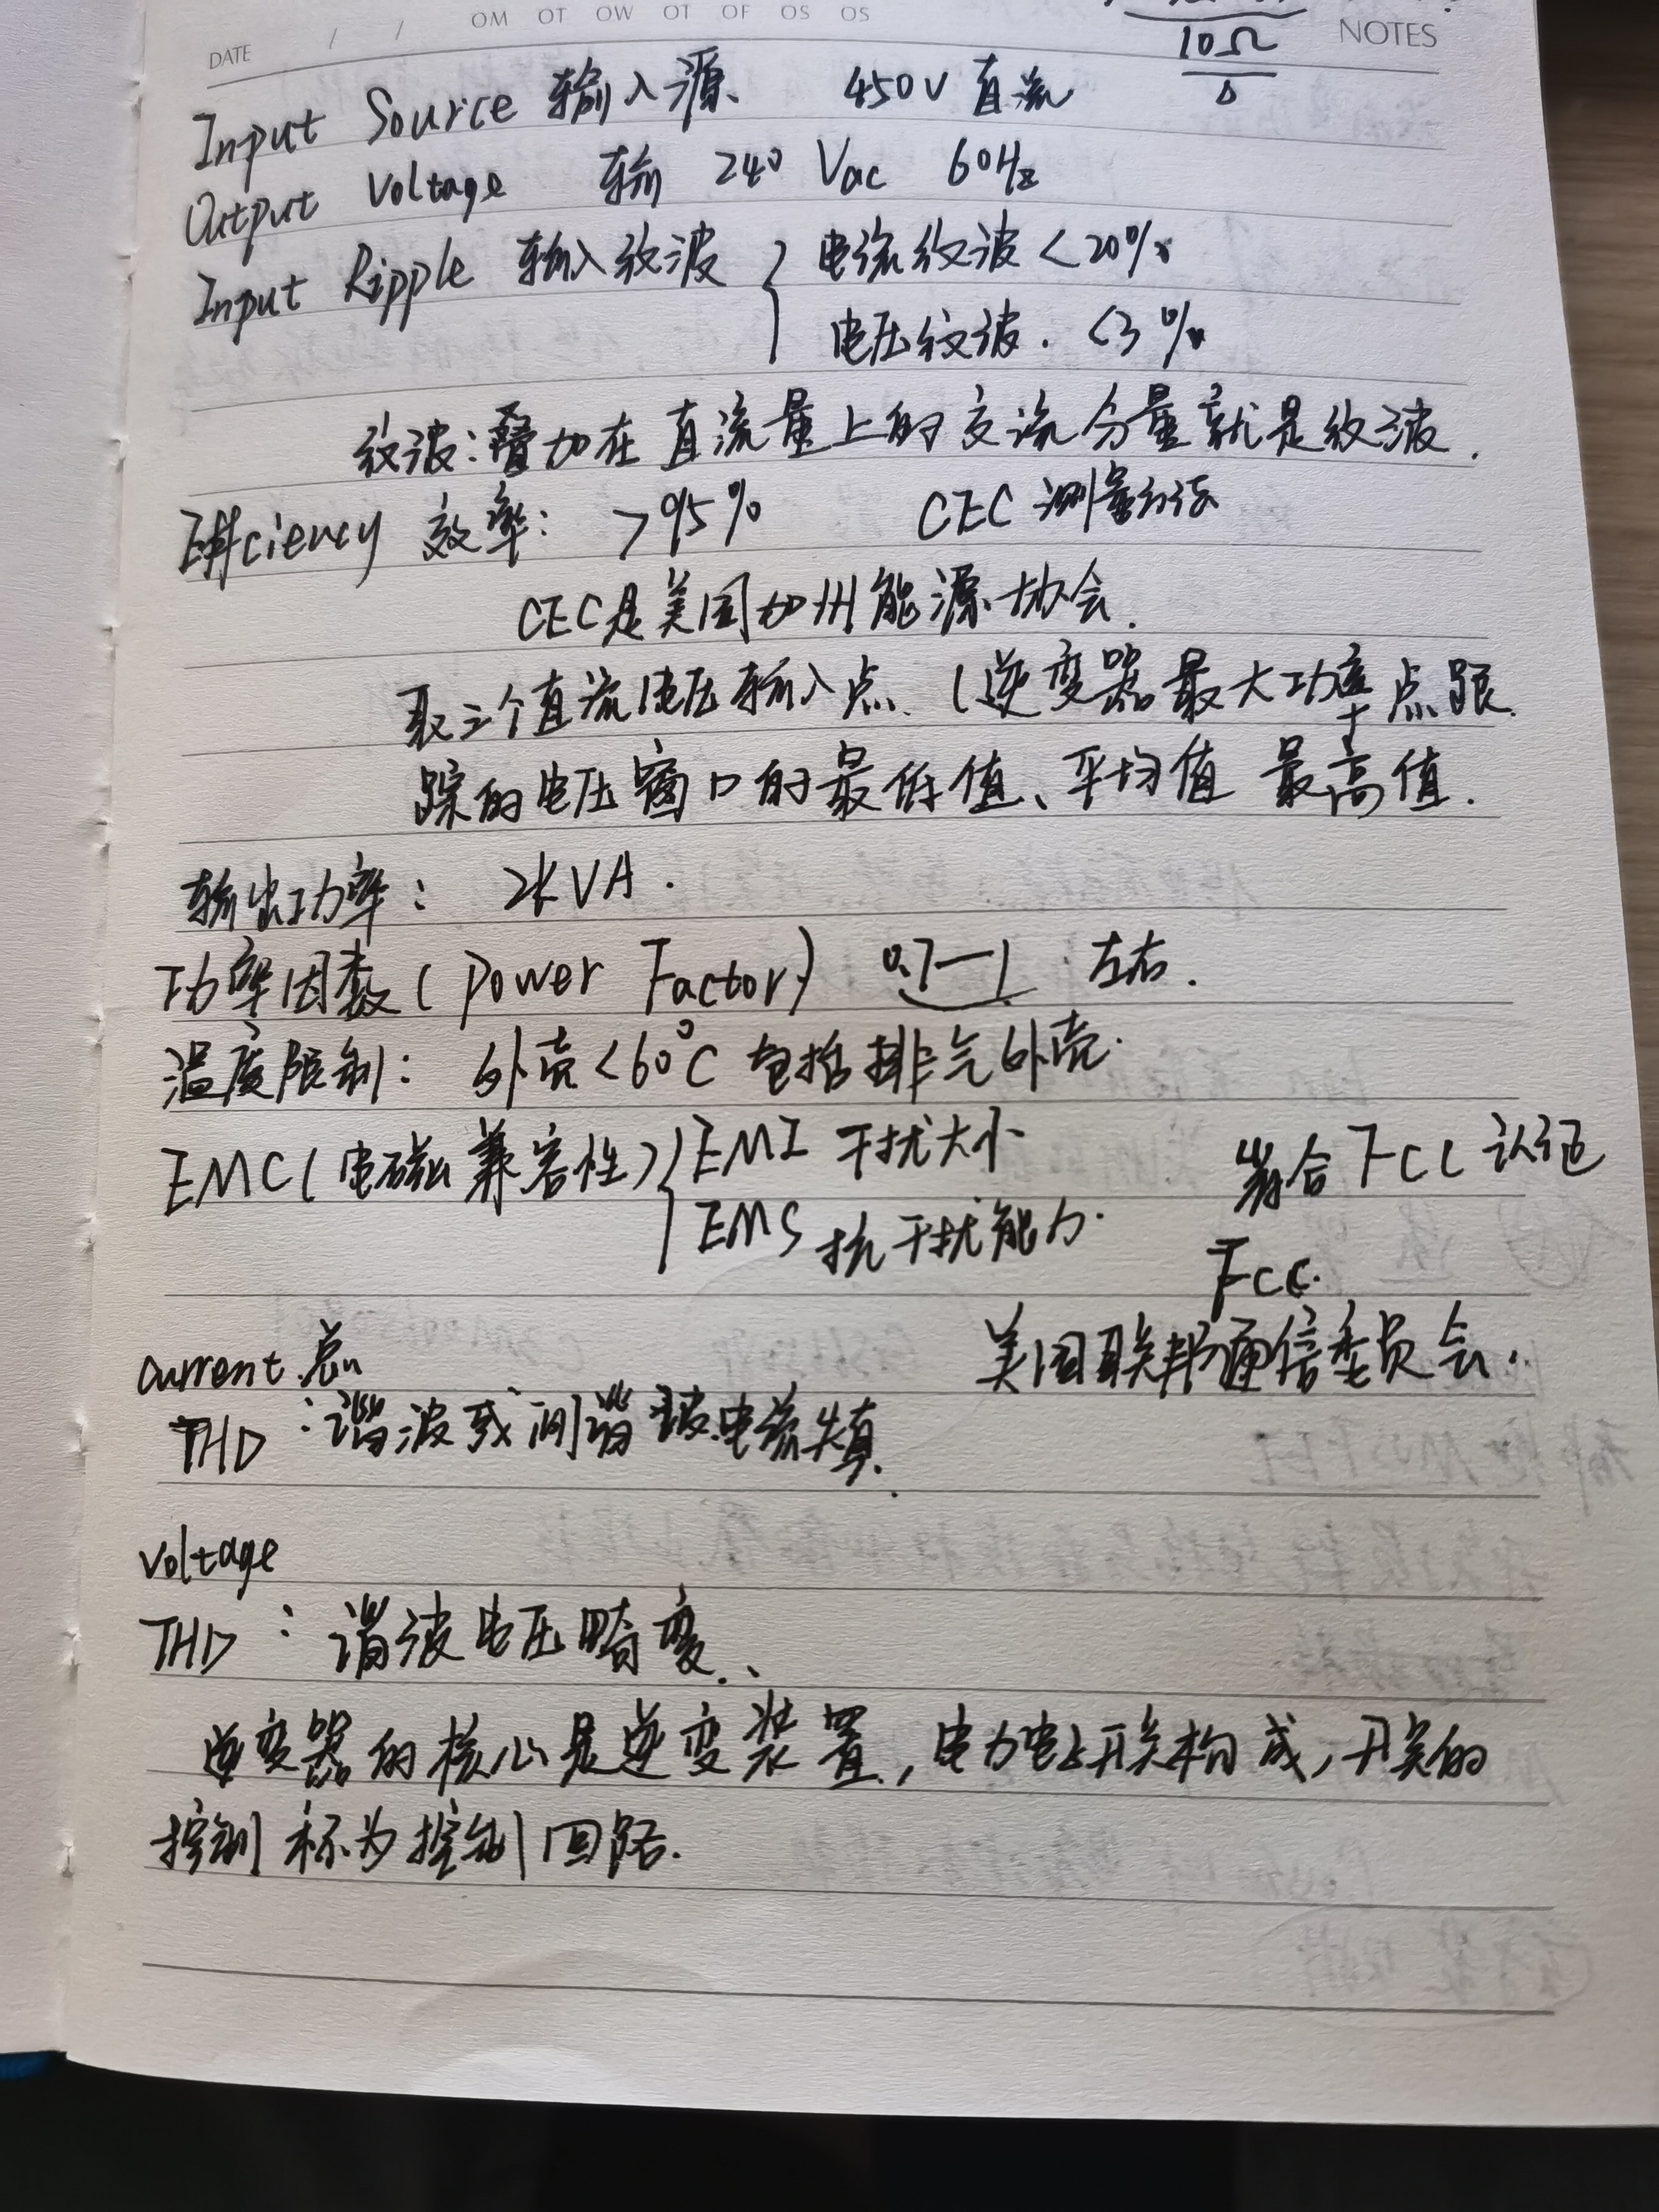 DATE / / OM OT OW OT OF OS OS NOTES
10Ω
Input Source 输入源 450V 直流
Output Voltage 输 240 Vac 60Hz
Input Ripple 输入纹波 { 电流纹波 <20%
电压纹波. <3%
纹波:叠加在直流量上的交流分量就是纹波.
Efficiency 效率: >95% CEC 测量方法
CEC是美国加州能源协会.
取三个直流电压输入点.(逆变器最大功率点跟
踪的电压窗口的最低值、平均值 最高值.
输出功率: 2kVA.
功率因数(Power Factor) 0.7—1 左右.
温度限制: 外壳<60°C 包括排气外壳.
EMC(电磁兼容性) { EMI 干扰大小 符合 FCC 认证
EMS 抗干扰能力.
FCC.
美国联邦通信委员会.
Current 总
THD :谐波或间谐波电流失真.
Voltage
THD :谐波电压畸变.、
逆变器的核心是逆变装置,电力电子开关构成,开关的
控制称为控制回路.